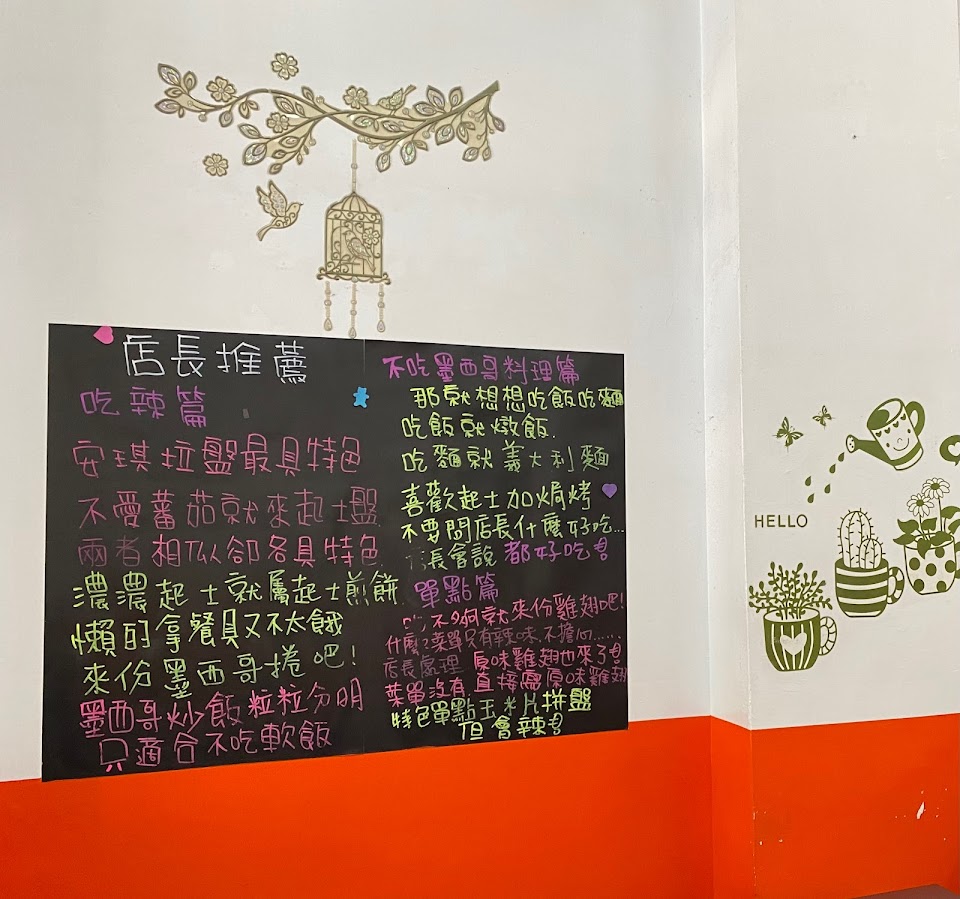 店長推薦
吃辣篇
安琪拉盤最具特色
不愛蕃茄就來起士盤
兩者相似卻各具特色
濃濃起士就屬起士煎餅
懶的拿餐具又不太餓
來份墨西哥捲吧!
墨西哥炒飯粒粒分明
只適合不吃軟飯
不吃墨西哥料理篇
那就想想吃飯吃麵
吃飯就燉飯.
吃麵就義大利麵
喜歡起士加焗烤
不要問店長什麼好吃...
店長會說都好吃
單點篇
吃不夠就來份雞翅吧!
什麼?菜單只有辣味.不擔心......
店長處理 原味雞翅也來了
菜單沒有.直接喊原味雞翅
特色單點玉米片拼盤
但會辣
HELLO